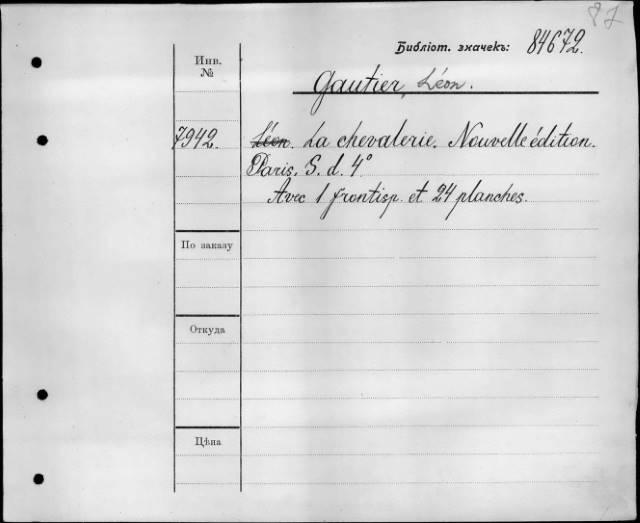 87
Библіот. значекъ: 84672.
Инв.
№
Gautier, Léon.
7942. Léon. La chevalerie. Nouvelle édition.
Paris. S. d. 4°
Avec 1 frontisp. et 24 planches.
По заказу
Откуда
Цѣна